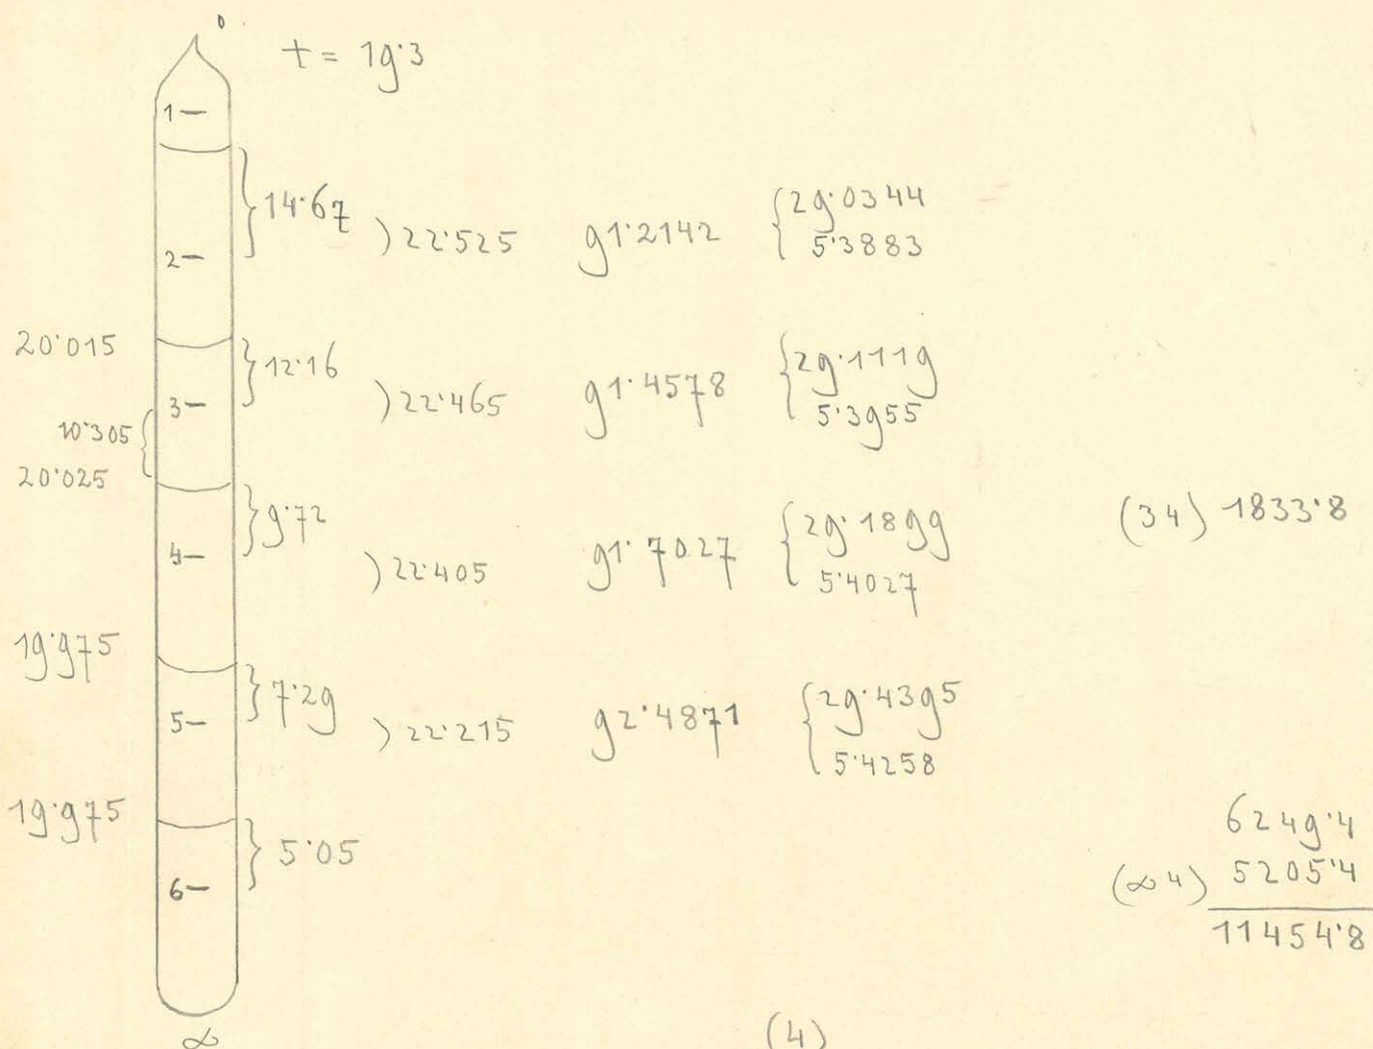 0
t = 19·3
1–
14·67
2–
)22·525 91·2142 {29·0344
5·3883
20·015
12·16
3–
)22·465 91·4578 {29·1119
5·3955
10·305
20·025
9·72
4–
)22·405 91·7027 {29·1899
5·4027
(34) 1833·8
19·975
7·29
5–
)22·215 92·4871 {29·4395
5·4258
19·975
5·05
6–
6249·4
(∞4) 5205·4
11454·8
∞
(4)